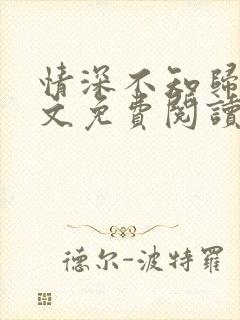 情深不知歸
文免費閱讀
德尔-波特羅